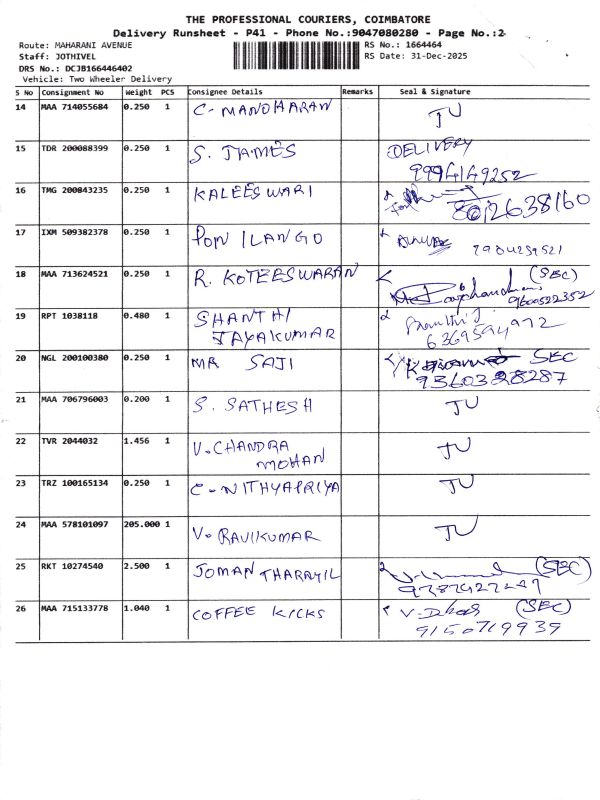 THE PROFESSIONAL COURIERS, COIMBATORE
Delivery Runsheet - P41 - Phone No.:9047080280 - Page No.:2
Route: MAHARANI AVENUE RS No.: 1664464
Staff: JOTHIVEL RS Date: 31-Dec-2025
DRS No.: DCJB166446402
Vehicle: Two Wheeler Delivery
S No Consignment No Weight PCS Consignee Details Remarks Seal & Signature
14 MAA 714055684 0.250 1 C- MANOHARAN JU
15 TDR 200088399 0.250 1 S. JAMES DELIVERY
9994149252
16 TMG 200843235 0.250 1 KALEESWARI 8012638160
17 IXM 509382378 0.250 1 PON ILANGO 7904259521
18 MAA 713624521 0.250 1 R. KOTEESWARAN (SEC)
9600522352
19 RPT 1038118 0.480 1 SHANTHI
JAYAKUMAR 6369594972
20 NGL 200100380 0.250 1 MR SAJI SEC
9360328287
21 MAA 706796003 0.200 1 S. SATHESH JU
22 TVR 2044032 1.456 1 V. CHANDRA
MOHAN JU
23 TRZ 100165134 0.250 1 C-NITHYAPRIYA JU
24 MAA 578101097 205.000 1 V. RAVIKUMAR JU
25 RKT 10274540 2.500 1 JOMAN THARAYIL (SEC)
26 MAA 715133778 1.040 1 COFFEE KICKS (SEC)
9150719939